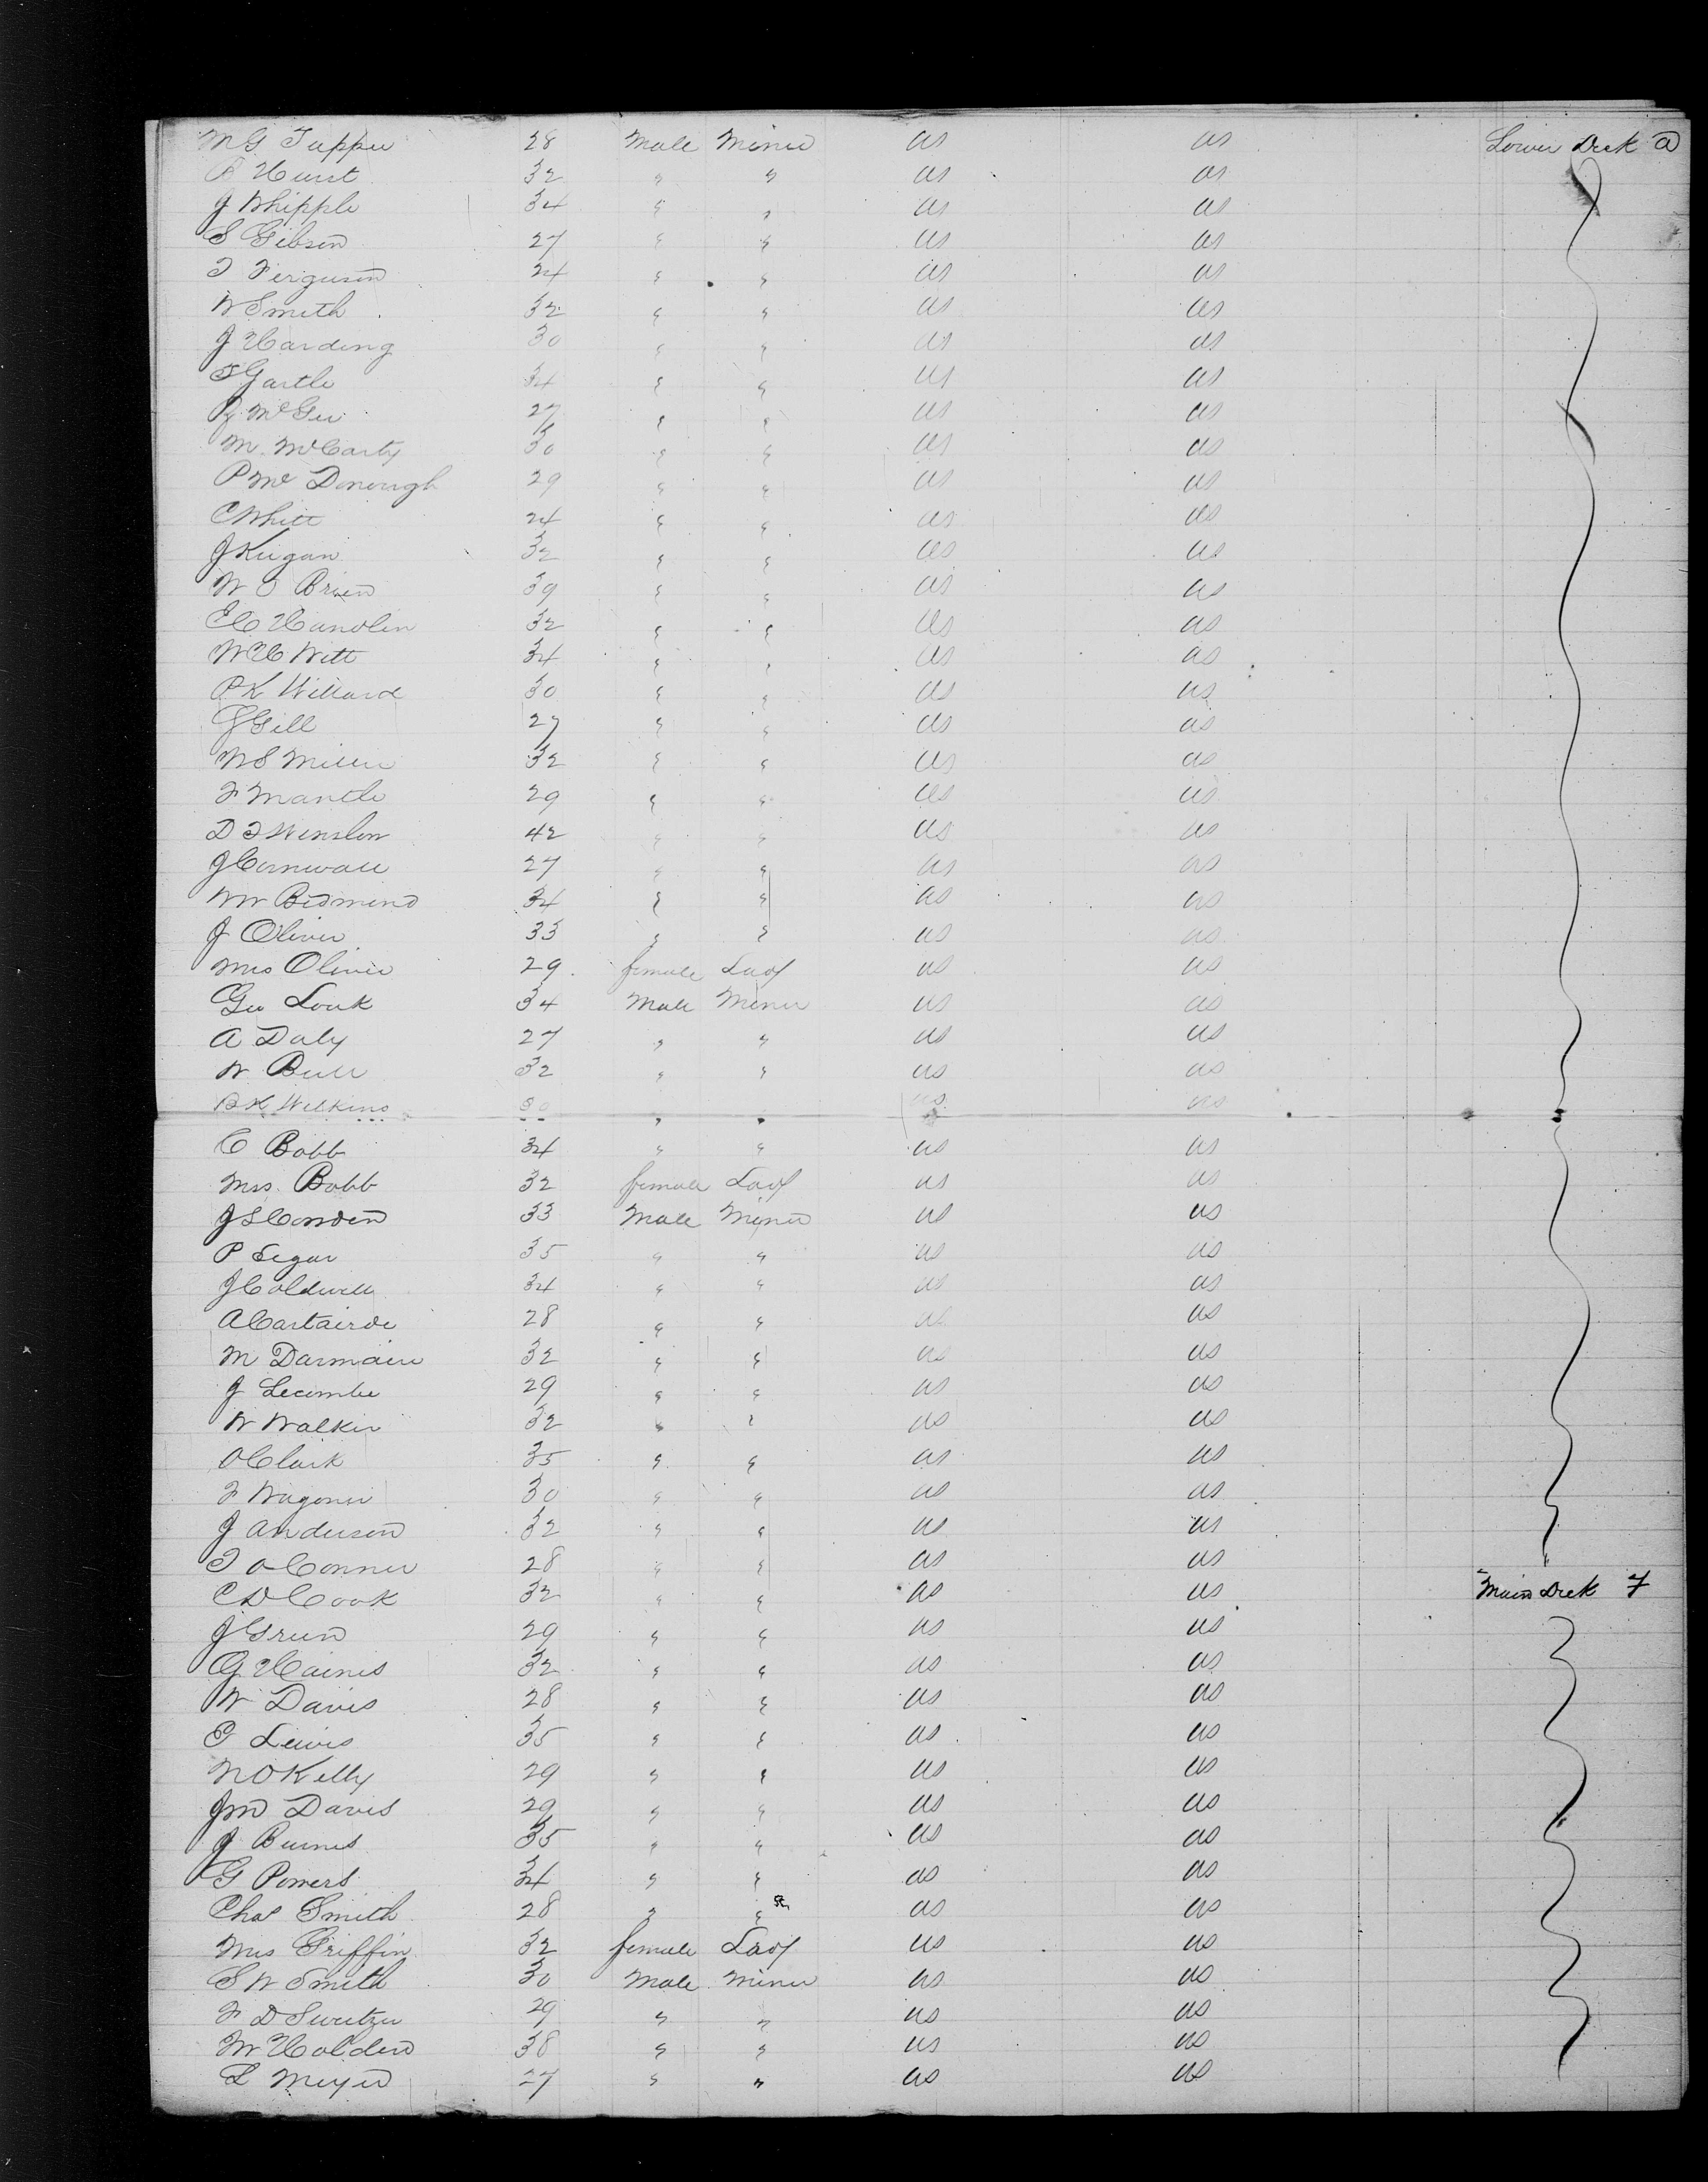 M G Tupper 28 Male Miner US US Lower Deck a
F Hurst 32 " " US US
J Whipple 34 " " US US
S Gibson 27 " " US US
T Ferguson 24 " " US US
W Smith 32 " " US US
J Harding 30 " " US US
34 " " US US
McGee 27 " " US US
M. McCarty 30 " " US US
P Mc Donough 29 " " US US
C White 24 " " US US
J Keegan 32 " " US US
W O Brien 39 " " US US
32 " " US US
W H Witt 34 " " US US
P K Willard 30 " " US US
J Gill 27 " " US US
W S Miller 32 " " US US
F Mantle 29 " " US US
D T Winslow 42 " " US US
J Cornwall 27 " " US US
34 " " US US
J Oliver 33 " " US US
Mrs Oliver 29 female Lady US US
Geo Louk 34 Male Miner US US
A Daly 27 " " US US
W Bull 32 " " US US
B H Wilkins 30 " " US US
C Bobb 34 " " US US
Mrs. Bobb 32 female Lady US US
33 Male Miner US US
P Segar 35 " " US US
J Coldwell 34 " " US US
A 28 " " US US
M Darmaire 32 " " US US
J 29 " " US US
W Walker 32 " " US US
O Clark 35 " " US US
F Wagoner 30 " " US US
J Anderson 32 " " US US
T O Conner 28 " " US US
C D Cook 32 " " US US Main Deck 7
J Green 29 " " US US
G Haines 32 " " US US
W Davis 28 " " US US
Lewis 35 " " US US
N O Kelly 29 " " US US
Jno Davis 29 " " US US
J Burnes 35 " " US US
G Powers 34 " " US US
Chas Smith 28 " " US US
Mrs Griffin 32 female Lady US US
S W Smith 30 Male Miner US US
F D Sweitzer 29 " " US US
W Holden 38 " " US US
L Meyer 27 " " US US